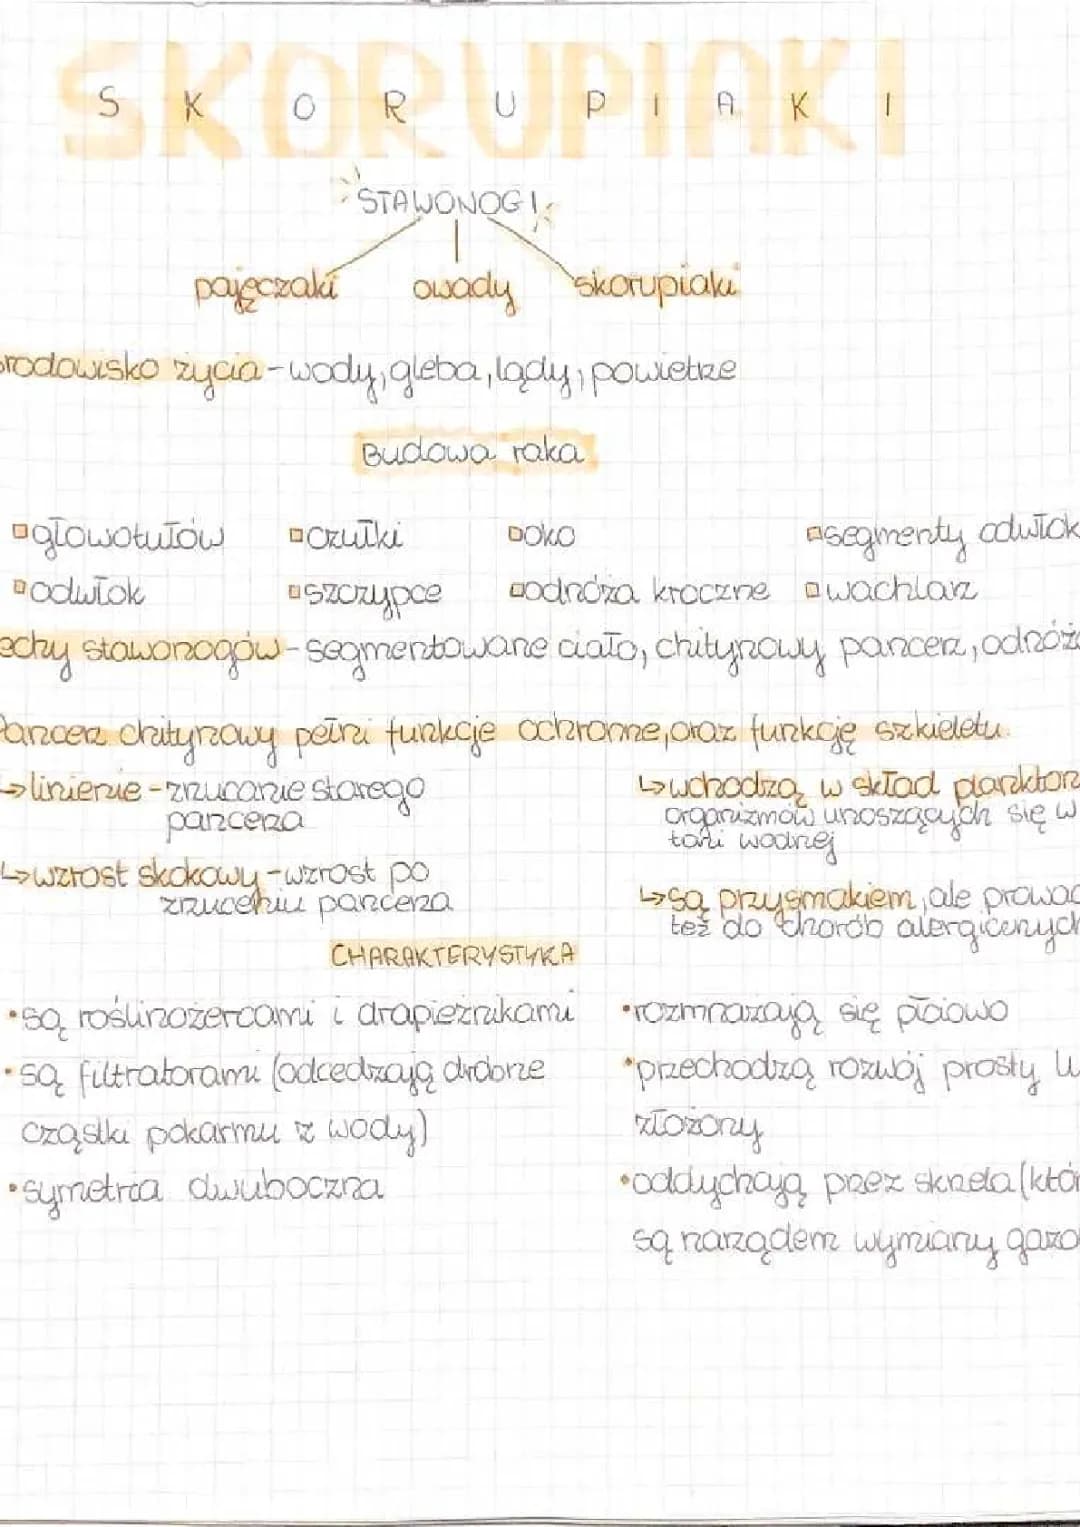 SKORUPIAKI
S K O R U P I A K I
STAWONOGI
pajęczaki owady skorupiaki
środowisko życia - wody, gleba, lądy, powietrze
Budowa raka
głowotułów czułki oko segmenty odwłok
odwłok szczypce odnóża kroczne wachlarz
echy stawonogów - segmentowane ciało, chitynowy pancerz, odnóża
Pancerz chitynowy pełni funkcje ochronne, oraz funkcję szkieletu.
↳ linienie - zrzucanie starego
pancerza
↳ wzrost skokowy - wzrost po
zrzuceniu pancerza
↳ wchodzą w skład plankton
organizmów unoszących się w
toni wodnej
↳ są przysmakiem, ale prowad
też do chorób alergicznych
CHARAKTERYSTYKA
• są roślinożercami i drapieżnikami
• są filtratorami (odcedzają drobne
cząstki pokarmu z wody)
• symetria dwuboczna
• rozmnażają się płciowo
• przechodzą rozwój prosty lu
złożony
• oddychają przez skrzela (któr
są narządem wymiany gazo